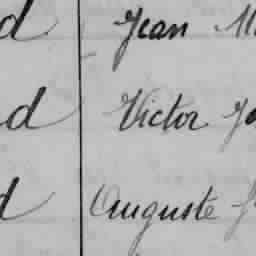 d Jean
d Victor
d Auguste